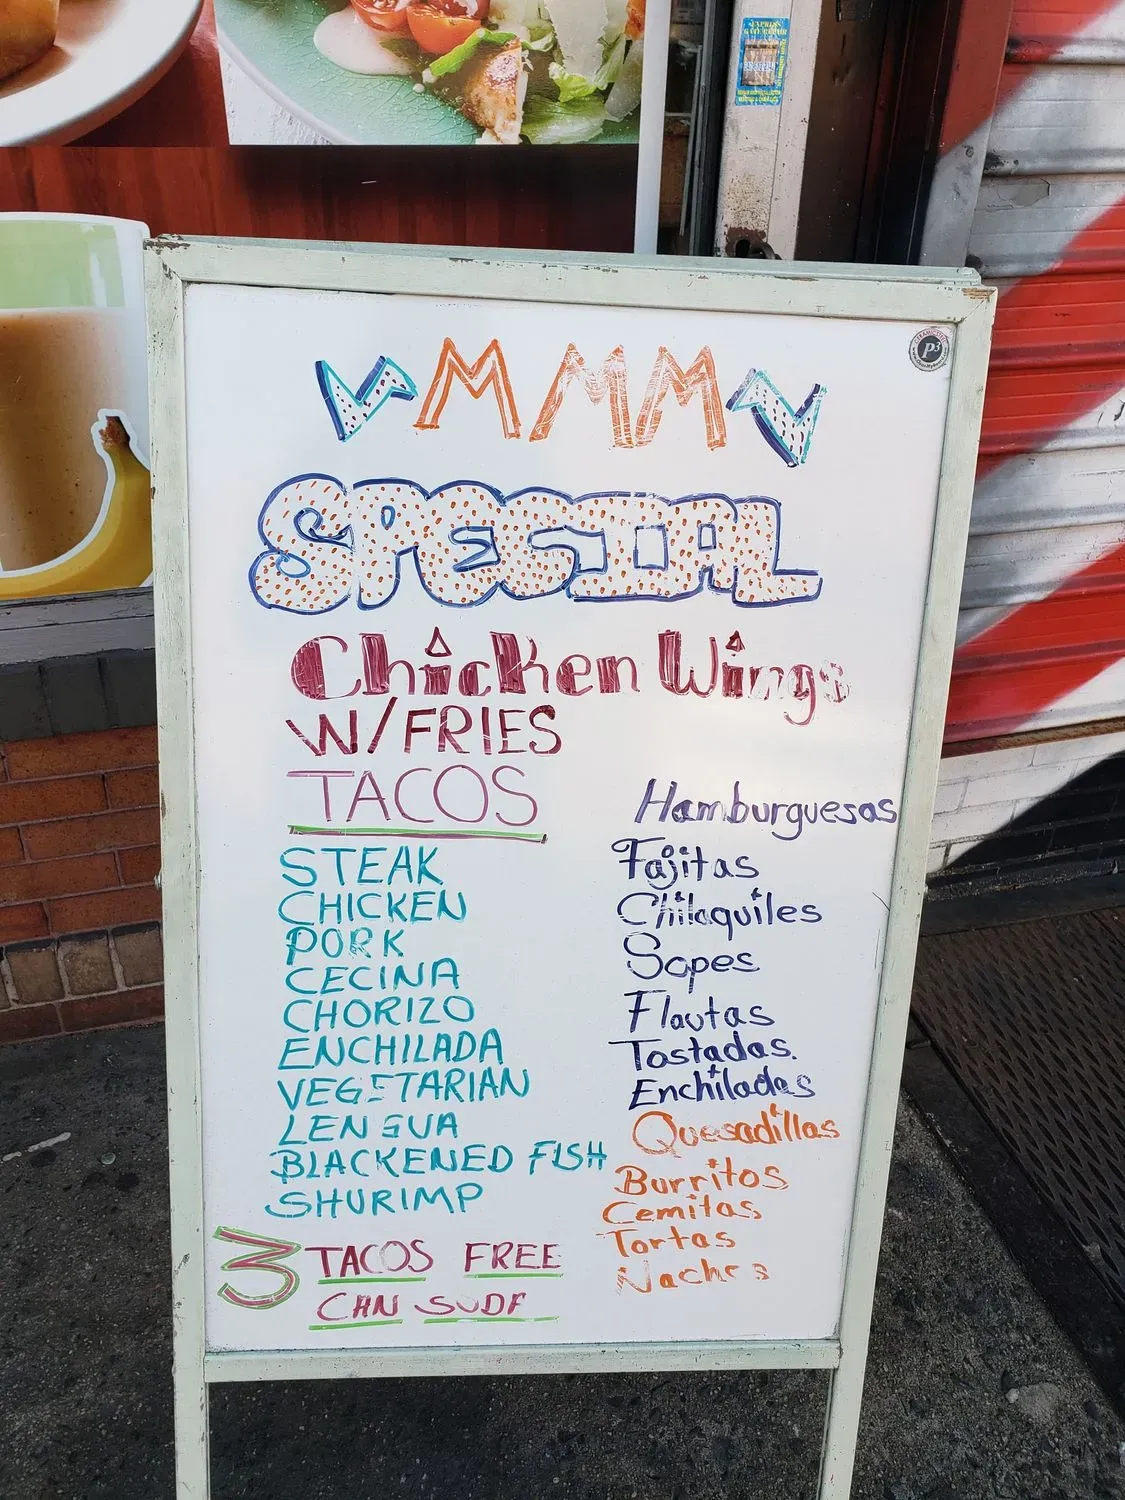 MMMM
SPECIAL
Chicken Wings
W/FRIES
TACOS
STEAK
CHICKEN
PORK
CECINA
CHORIZO
ENCHILADA
VEGETARIAN
LENGUA
BLACKENED FISH
SHURIMP
3 TACOS FREE
CAN SUDE
Hamburguesas
Fajitas
Chilaquiles
Sopes
Flautas
Tostadas.
Enchiladas
Quesadillas
Burritos
Cemitas
Tortas
Nachos
P3